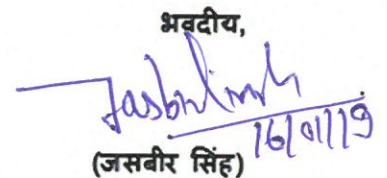 भवदीय,
Jasbir Singh
16/01/19
(जसबीर सिंह)